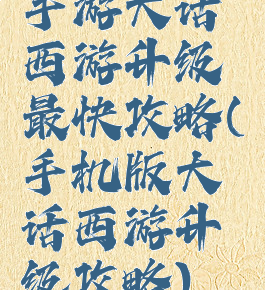 手游大话
西游升级
最快攻略(
手机版大
话西游升
级攻略)